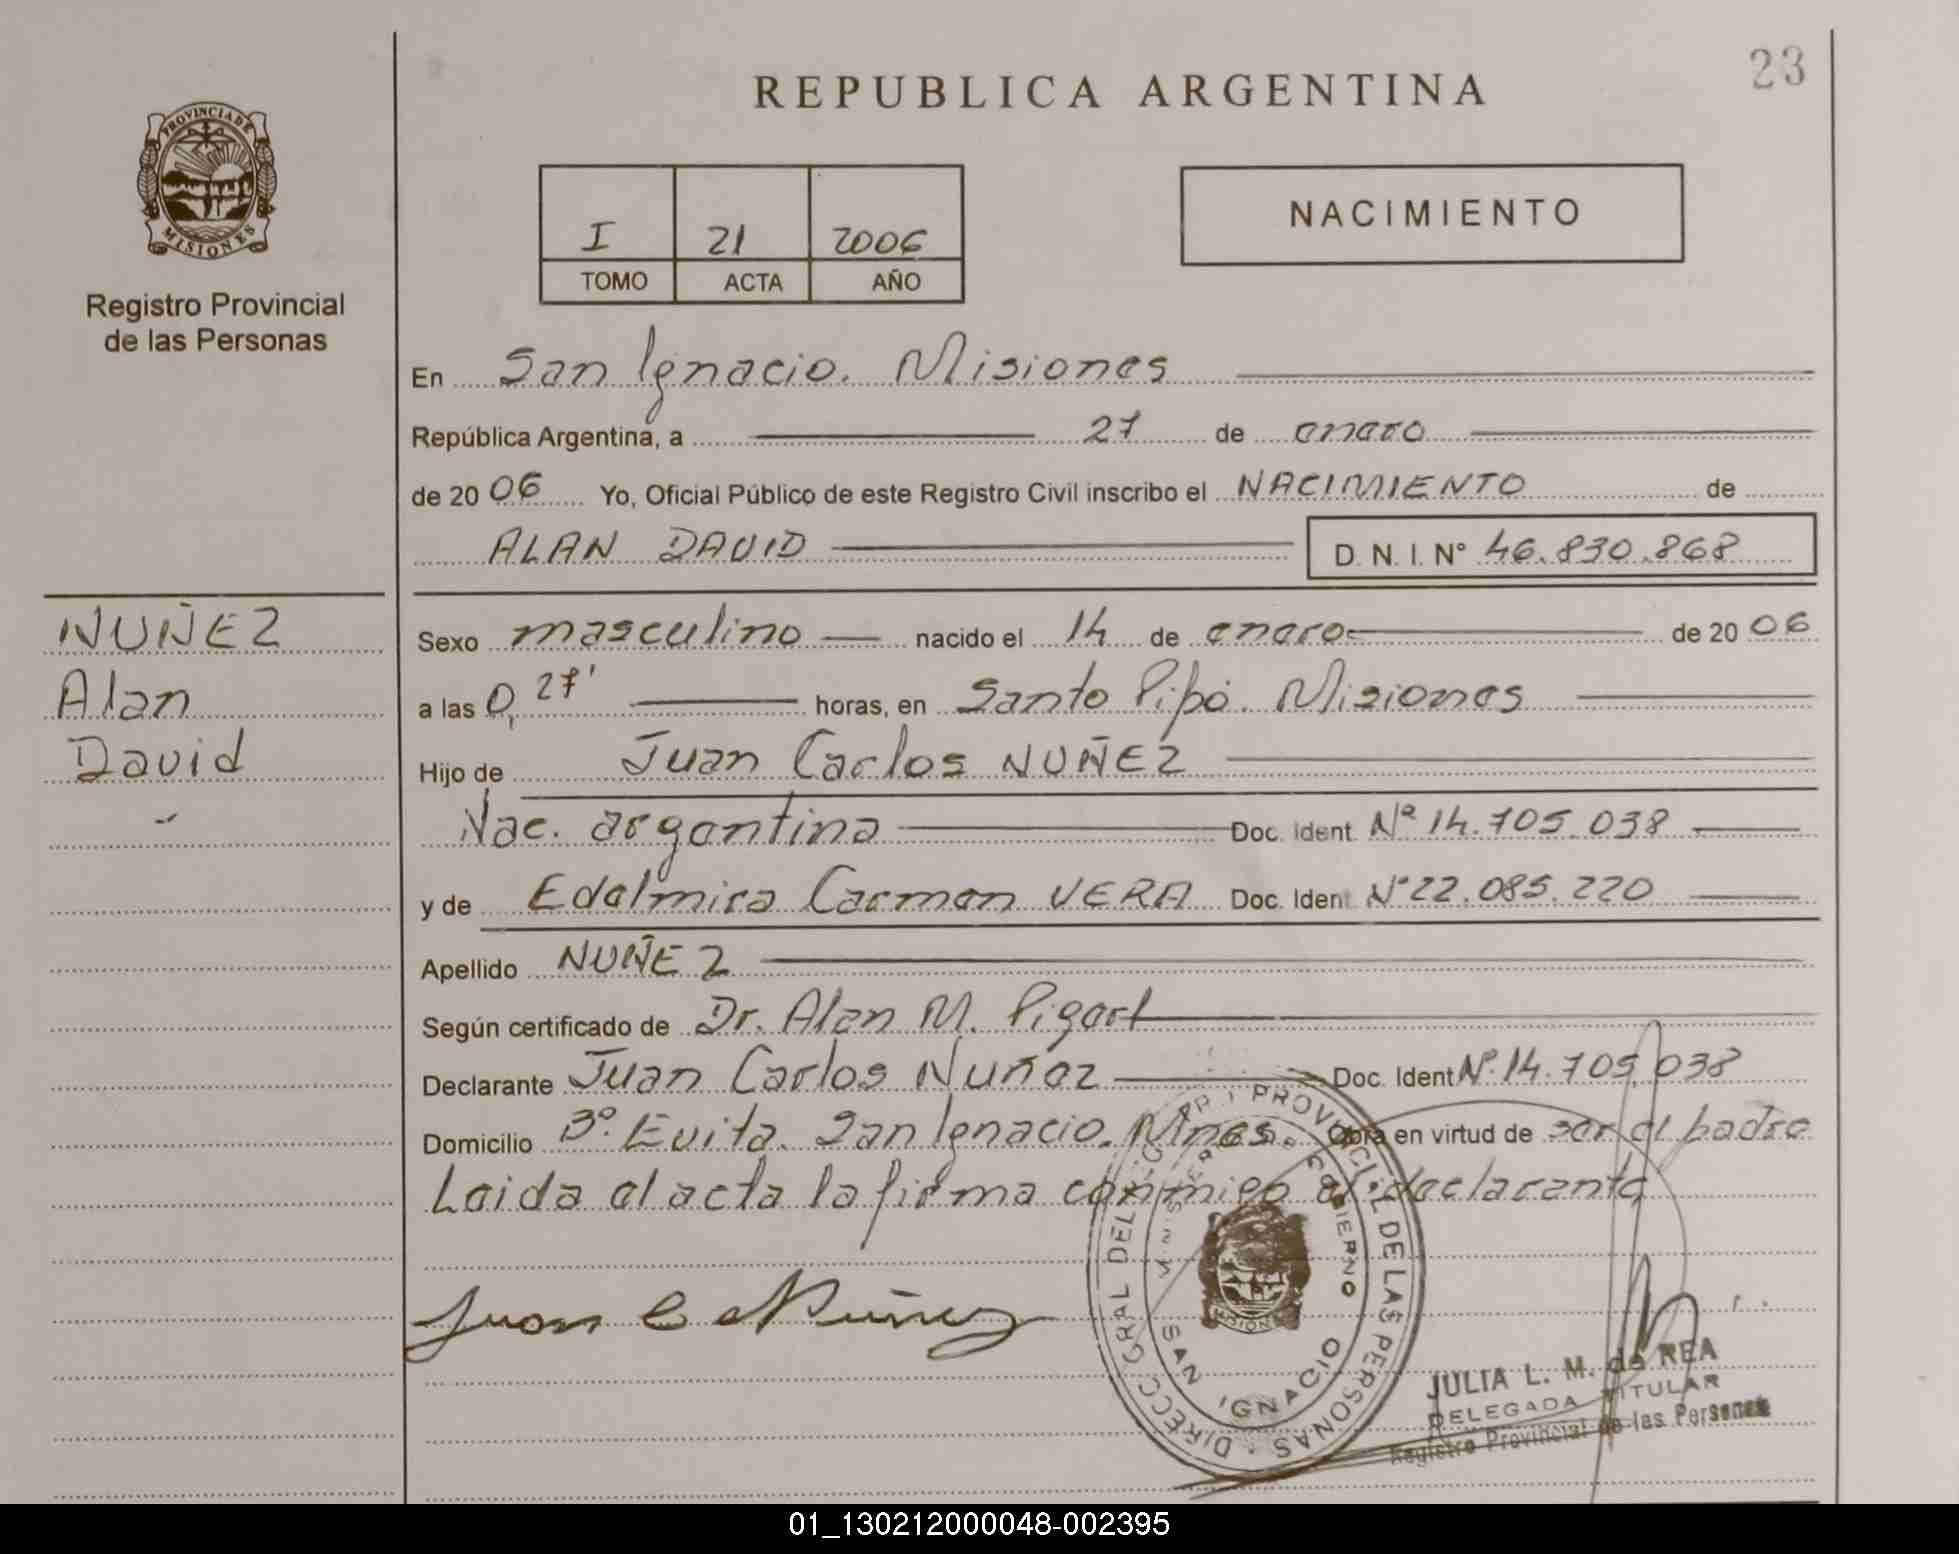 23
REPUBLICA ARGENTINA
PROVINCIA DE
MISIONES
Registro Provincial
de las Personas
I 21 2006
TOMO ACTA AÑO
NACIMIENTO
En San Ignacio. Misiones
República Argentina, a 27 de enero
de 20 06 Yo, Oficial Público de este Registro Civil inscribo el NACIMIENTO de
ALAN DAVID D. N. I. N° 46.830.868
NUÑEZ
Alan
David
Sexo masculino nacido el 14 de enero de 20 06
a las 0,27' horas, en Santo Pipó. Misiones
Hijo de Juan Carlos NUÑEZ
Nac. argentina Doc. Ident. Nº 14.705.038
y de Edelmira Carmen VERA Doc. Ident. N° 22.085.220
Apellido NUÑEZ
Según certificado de Dr. Alan M.
Declarante Juan Carlos Nuñez Doc. Ident N°. 14.705.038
Domicilio Bº. Evita. San Ignacio. Mnes. Obra en virtud de ser el padre
Leida el acta la firma conmigo el declarante
Juan C Nuñez
DIRECC GRAL DEL REGISTRO PROVINCIAL DE LAS PERSONAS
MINISTERIO DE GOBIERNO
MISIONES
SAN IGNACIO
JULIA L. M. de REA
DELEGADA TITULAR
Registro Provincial de las Personas
01_130212000048-002395